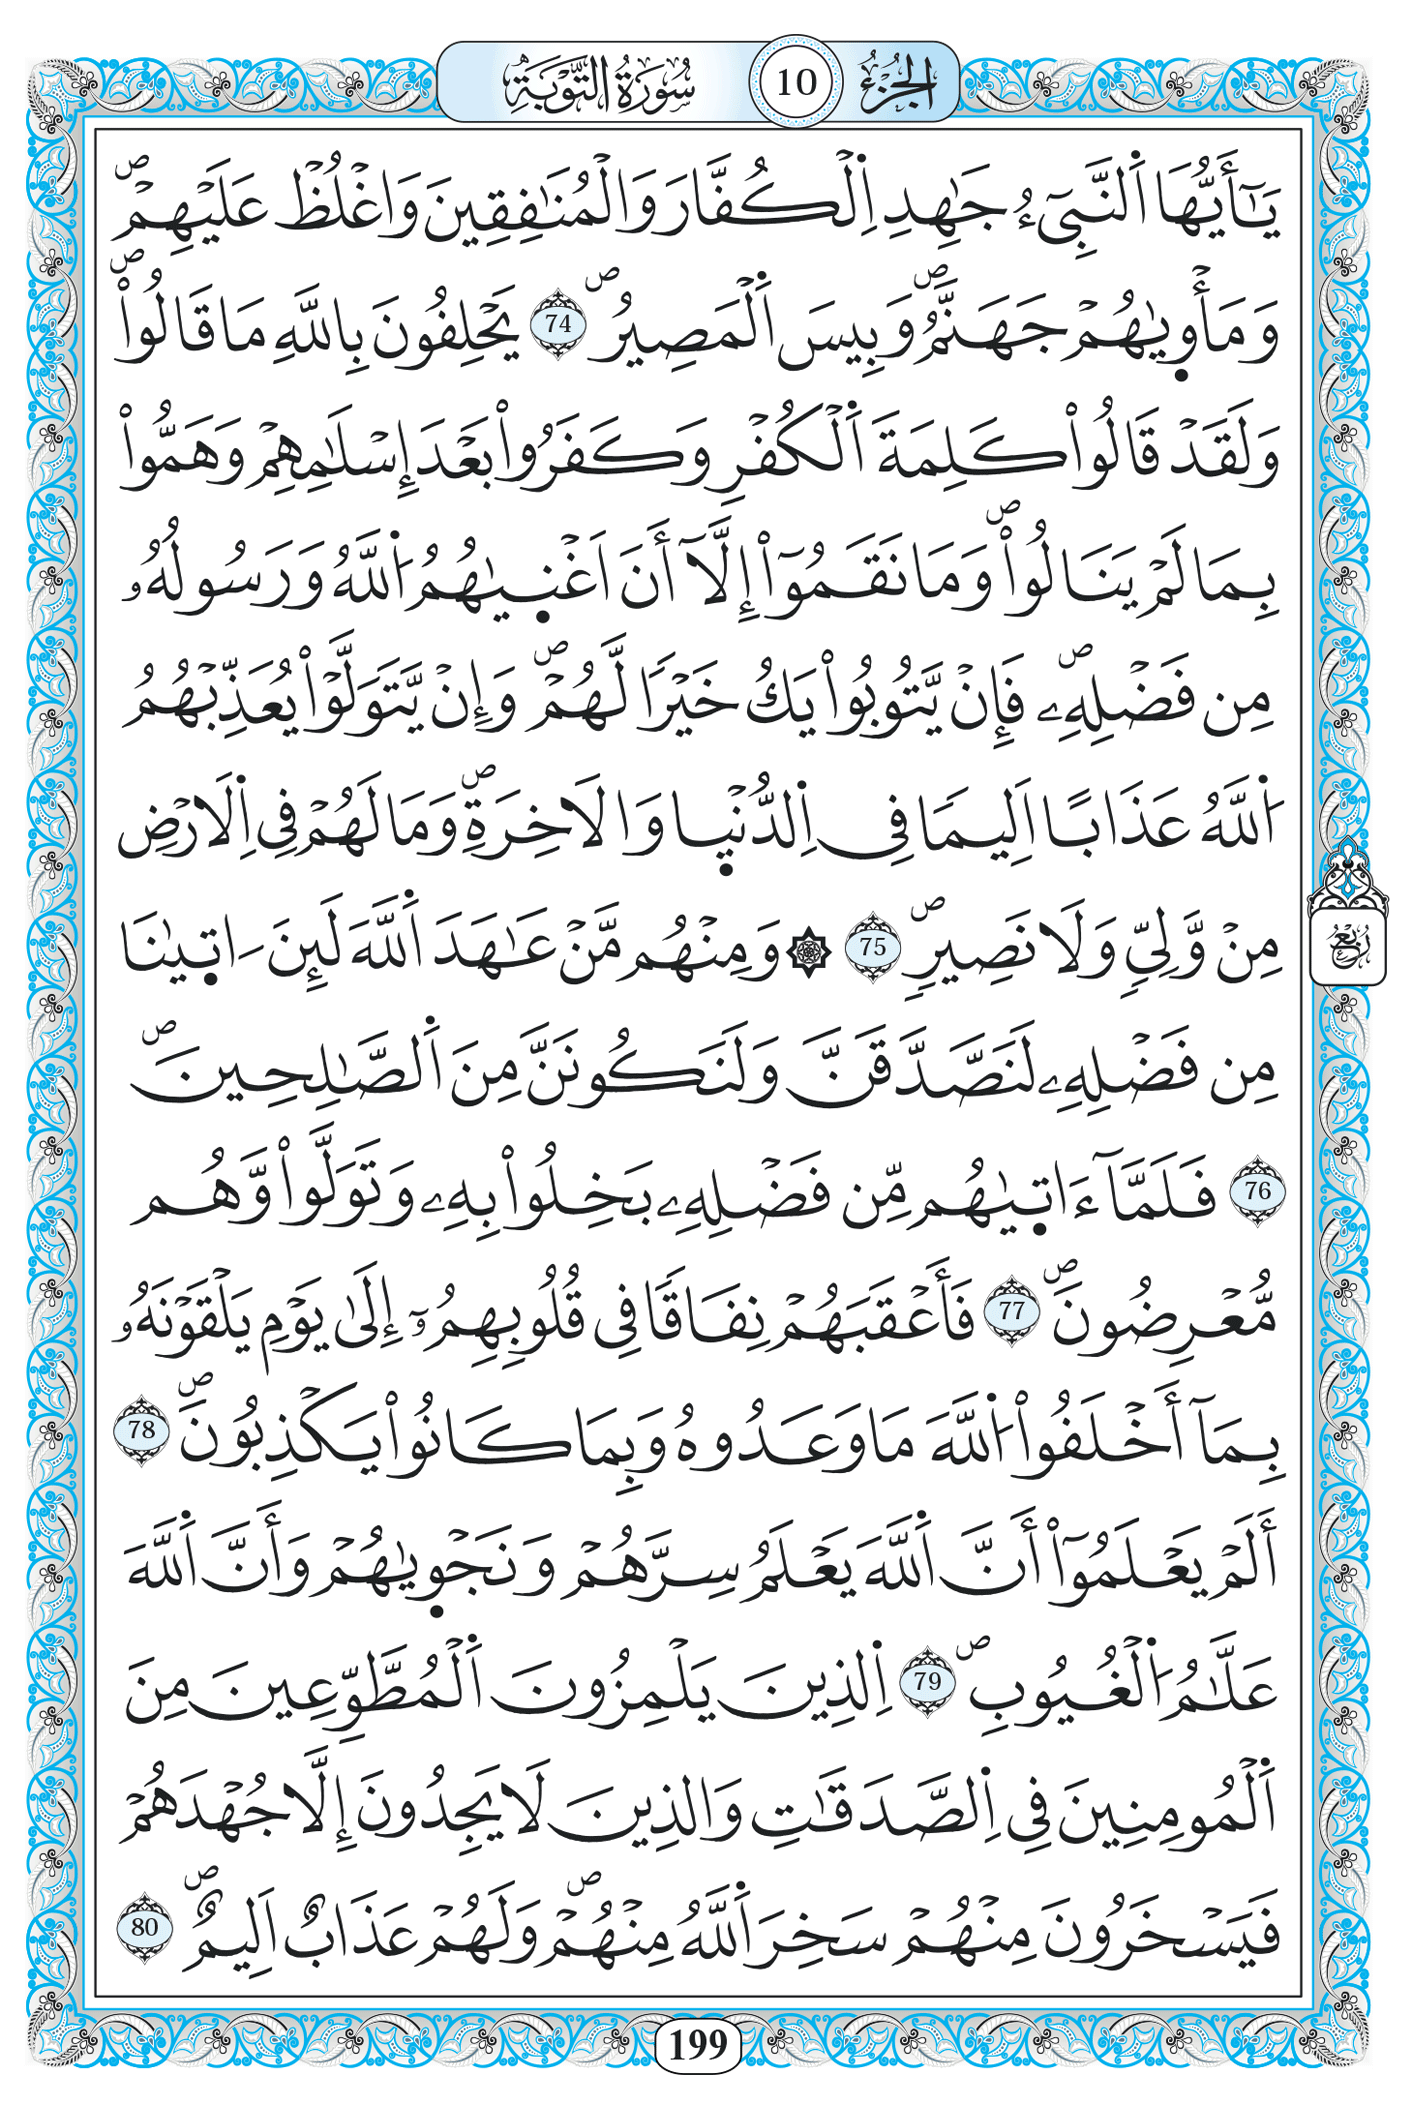 الجزء 10 سورة التوبة
يَٰٓأَيُّهَا اَ۬لنَّبِيٓءُ جَٰهِدِ اِ۬لْكُفَّارَ وَالْمُنَٰفِقِينَ وَاغْلُظْ عَلَيْهِمْۖ
وَمَأْو۪يٰهُمْ جَهَنَّمُۖ وَبِيسَ اَ۬لْمَصِيرُۖ 74 يَحْلِفُونَ بِاللَّهِ مَا قَالُواْۖ
وَلَقَدْ قَالُواْ كَلِمَةَ اَ۬لْكُفْرِ وَكَفَرُواْ بَعْدَ إِسْلَٰمِهِمْ وَهَمُّواْ
بِمَا لَمْ يَنَالُواْۖ وَمَا نَقَمُوٓاْ إِلَّآ أَنَ اَغْن۪يٰهُمُ اُ۬للَّهُ وَرَسُولُهُۥ
مِن فَضْلِهِۦۖ فَإِنْ يَّتُوبُواْ يَكُ خَيْراٗ لَّهُمْۖ وَإِنْ يَّتَوَلَّوْاْ يُعَذِّبْهُمُ
اُ۬للَّهُ عَذَاباً اَلِيماٗ فِي اِ۬لدُّنْي۪ا وَالَاخِرَةِۖ وَمَا لَهُمْ فِي اِ۬لَارْضِ
مِنْ وَّلِيّٖ وَلَا نَصِيرٖۖ 75 ۞ وَمِنْهُم مَّنْ عَٰهَدَ اَ۬للَّهَ لَئِنَ اٰت۪يٰنَا
مِن فَضْلِهِۦ لَنَصَّدَّقَنَّ وَلَنَكُونَنَّ مِنَ اَ۬لصَّٰلِحِينَۖ
76 فَلَمَّآ ءَات۪يٰهُم مِّن فَضْلِهِۦ بَخِلُواْ بِهِۦ وَتَوَلَّواْ وَّهُم
مُّعْرِضُونَۖ 77 فَأَعْقَبَهُمْ نِفَاقاٗ فِي قُلُوبِهِمُۥٓ إِلَىٰ يَوْمِ يَلْقَوْنَهُۥ
بِمَآ أَخْلَفُواْ اُ۬للَّهَ مَا وَعَدُوهُ وَبِمَا كَانُواْ يَكْذِبُونَۖ 78
أَلَمْ يَعْلَمُوٓاْ أَنَّ اَ۬للَّهَ يَعْلَمُ سِرَّهُمْ وَنَجْو۪يٰهُمْ وَأَنَّ اَ۬للَّهَ
عَلَّٰمُ اُ۬لْغُيُوبِۖ 79 اِ۬لذِينَ يَلْمِزُونَ اَ۬لْمُطَّوِّعِينَ مِنَ
اَ۬لْمُومِنِينَ فِي اِ۬لصَّدَقَٰتِ وَالذِينَ لَا يَجِدُونَ إِلَّا جُهْدَهُمْ
فَيَسْخَرُونَ مِنْهُمْ سَخِرَ اَ۬للَّهُ مِنْهُمْۖ وَلَهُمْ عَذَابٌ اَلِيمٌۖ 80
ربع
199